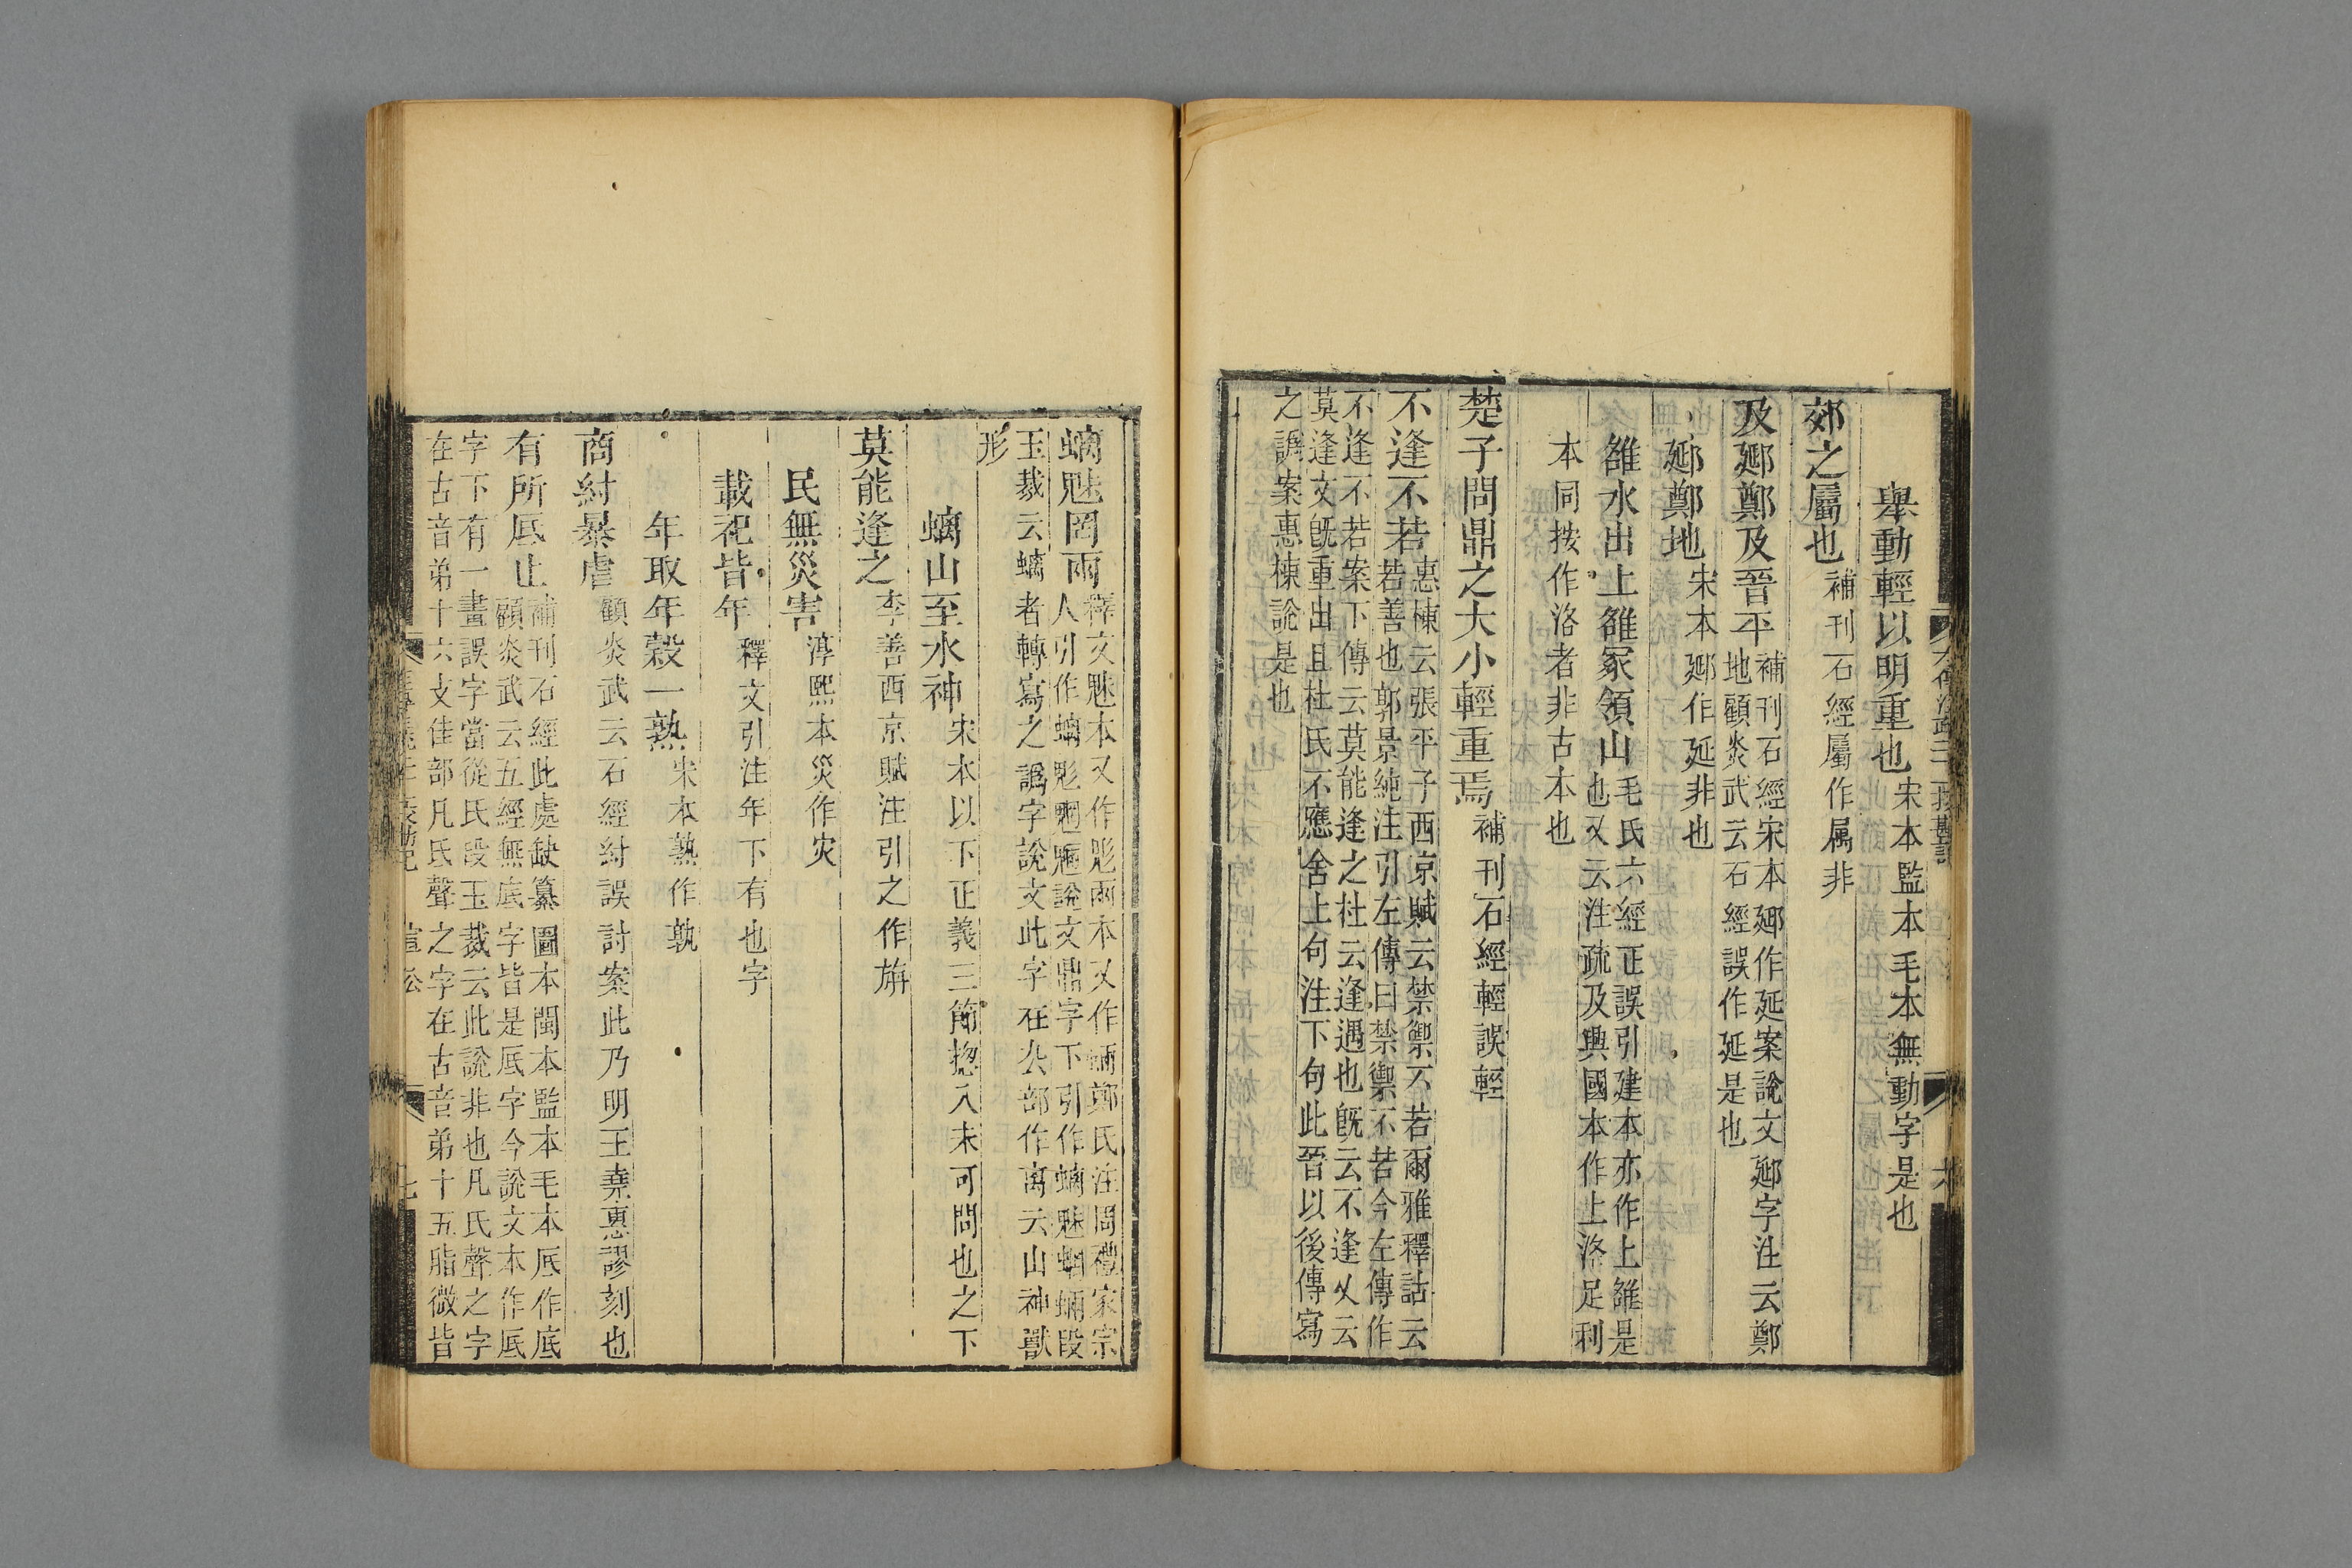 舉動輕以明重也宋本監本毛本無動字是也
郊之屬也補刊石經屬作属非
及郔鄭及晉平補刊石經宋本郔作延案說文郔字注云鄭
地顧炎武云石經誤作延是也
郔鄭地宋本郔作延非也
雒水出上雒冢領山毛氏六經正誤引建本亦作上雒是
也又云注疏及興國本作上洛足利
本同按作洛者非古本也
楚子問鼎之大小輕重焉補刊石經輕誤輕
不逢不若惠棟云張平子西京賦云禁禦不若爾雅釋詁云
若善也郭景純注引左傳曰禁禦不若今左傳作
不逢不若案下傳云莫能逢之杜云逢遇也旣云不逢又云
莫逢文旣重出且杜氏不應舍上句注下句此晉以後傳寫
之譌案惠棟說是也
螭魅罔兩釋文魅本又作鬽兩本又作蜽鄭氏注周禮家宗
人引作螭鬽說文鼎字下引作螭魅蝄蜽段
玉裁云螭者轉寫之譌字說文此字在厹部作离云山神獸
形
螭山至水神宋本以下正義三節揔入未可問也之下
莫能逢之李善西京賦注引之作旃
民無災害淳熙本災作灾
載祀皆年釋文引注年下有也字
年取年穀一熟宋本熟作孰
商紂暴虐顧炎武云石經紂誤討案此乃明王堯惠謬刻也
有所厎止補刊石經此處缺纂圖本閩本監本毛本厎作底
顧炎武云五經無底字皆是厎字今說文本作厎
字下有一畫誤字當從氏段玉裁云此說非也凡氏聲之字
在古音弟十六支佳部凡氐聲之字在古音弟十五脂微皆